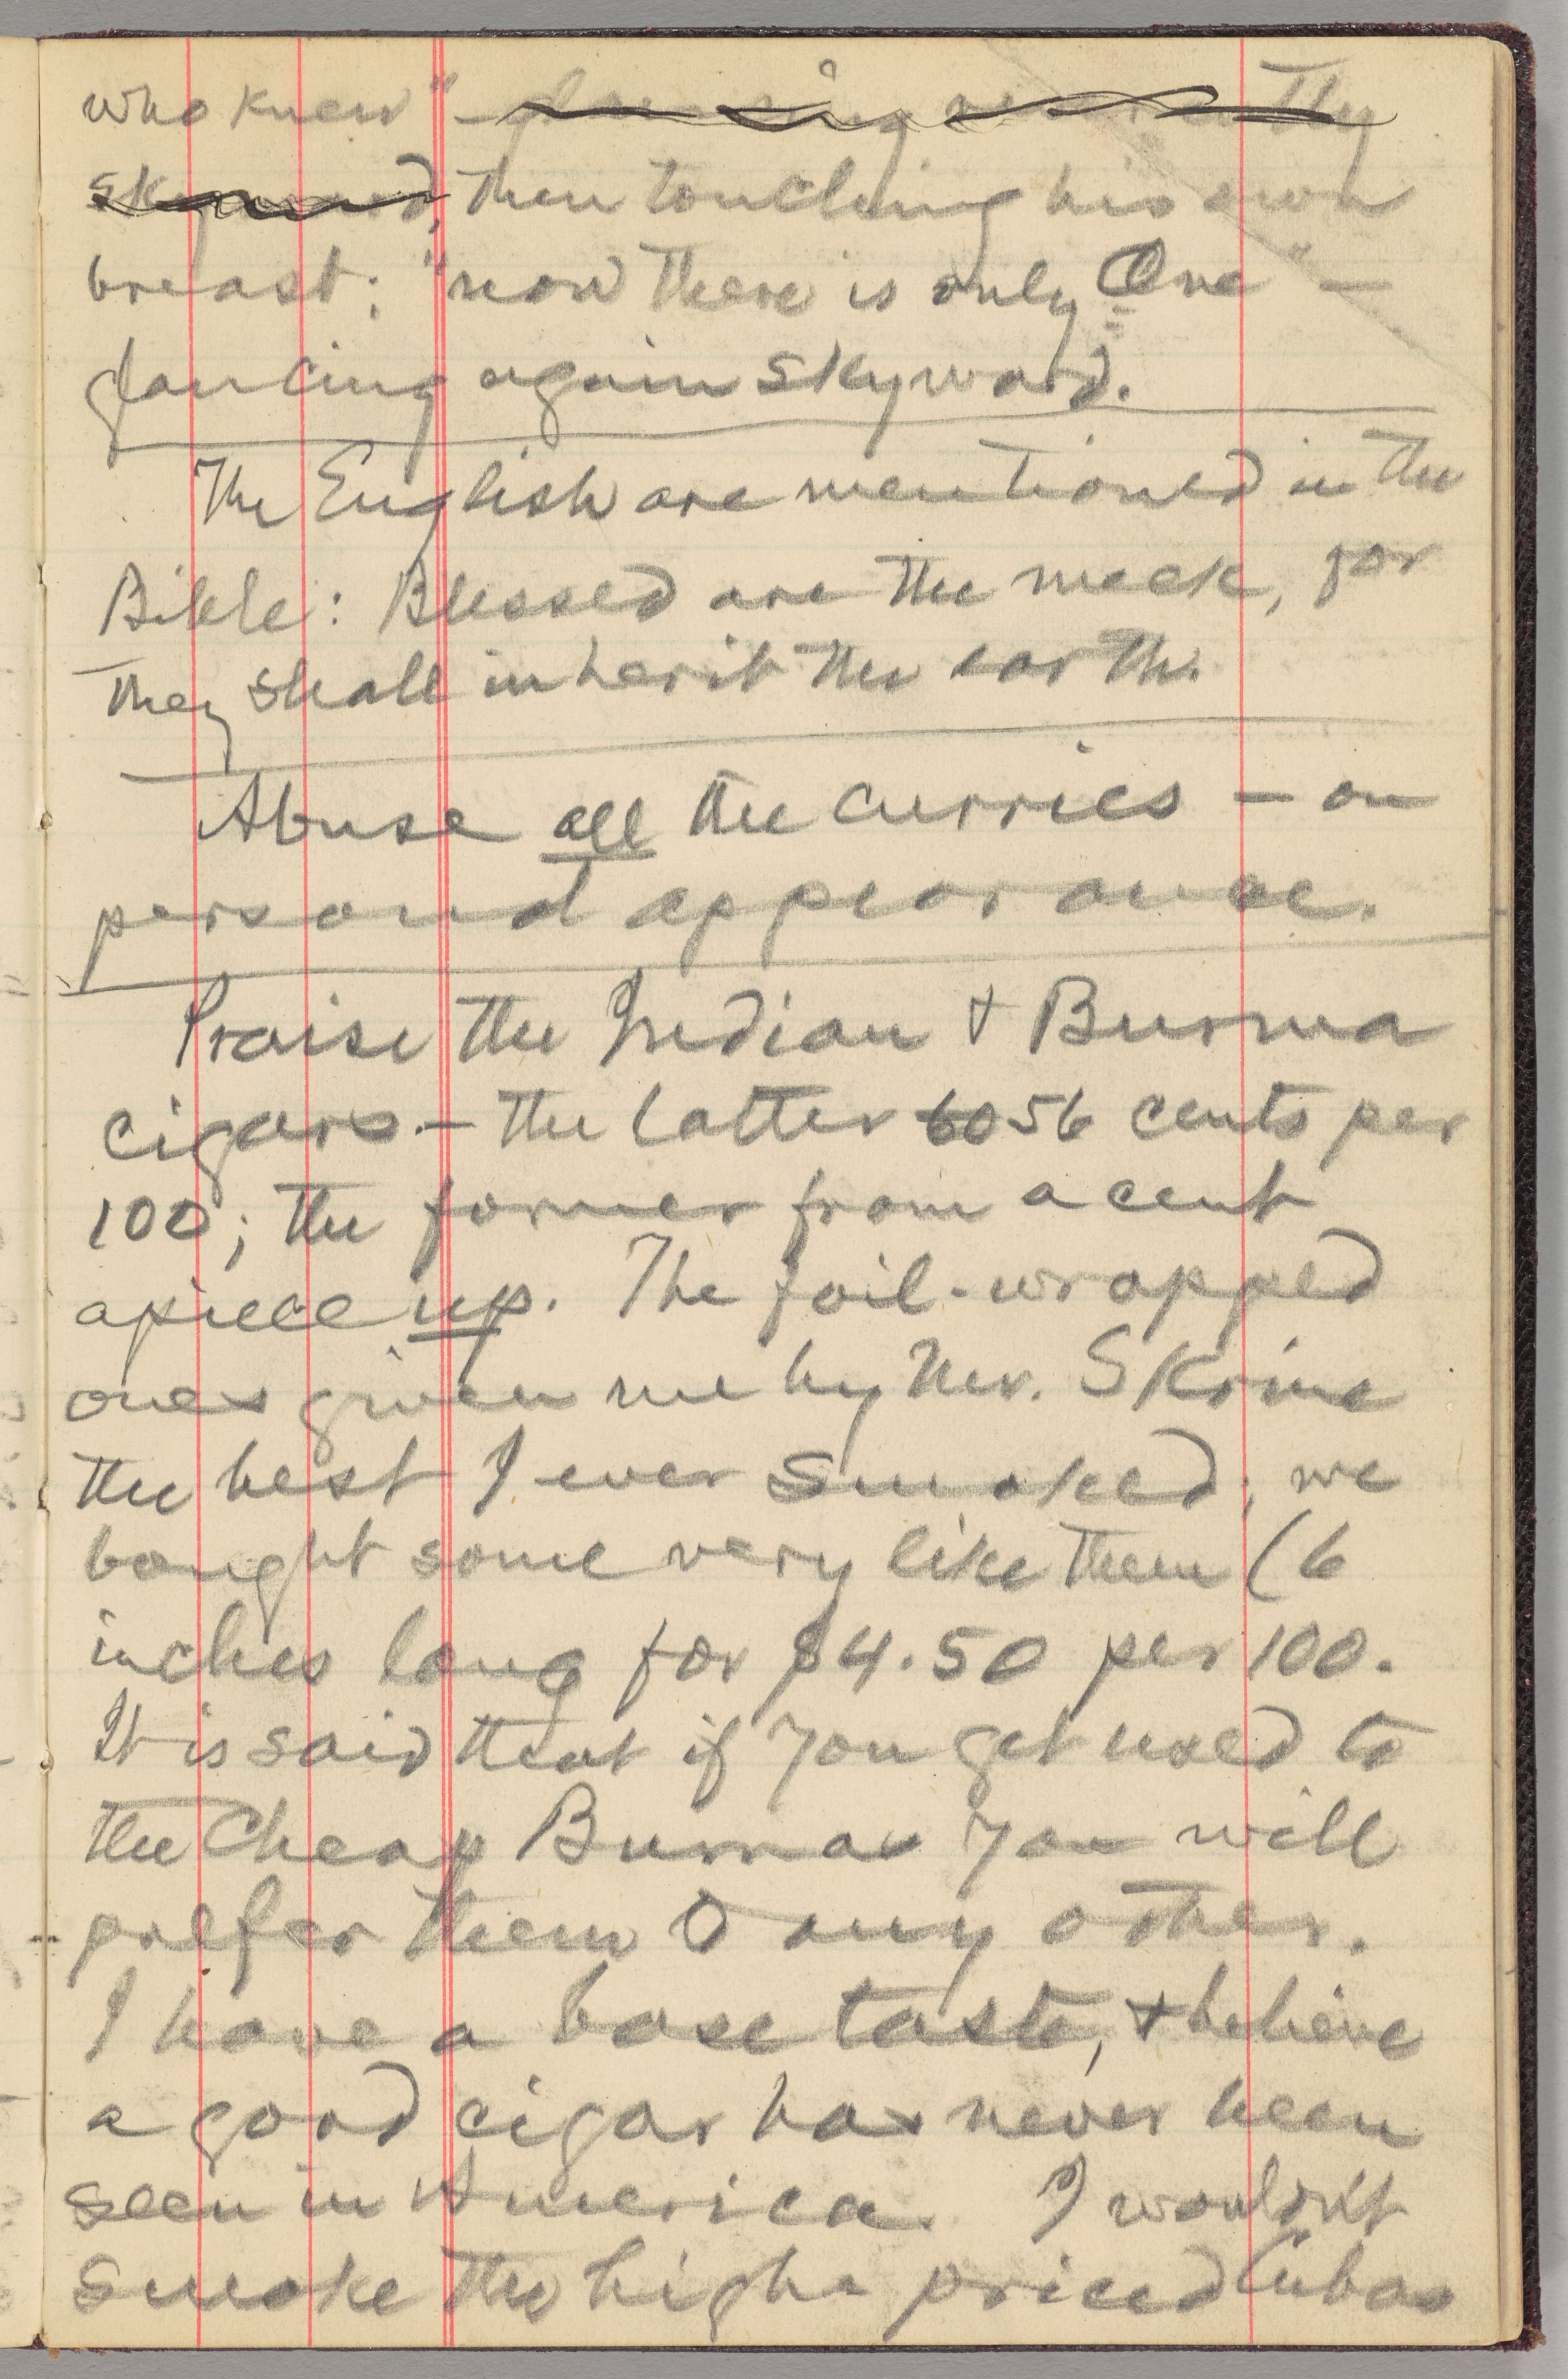 who knew" — glancing reverently
skyward, then touching his own
breast; "now there is only One" —
glancing again skyward.
The English are mentioned in the
Bible: Blessed are the meek, for
they shall inherit the earth.
Abuse all the curries — on
personal appearance.
Praise the Indian & Burma
cigars — the latter 60 56 cents per
100; the former from a cent
apiece up. The foil-wrapped
ones given me by Mr. Skrine
the best I ever smoked; we
bought some very like them (6
inches long for $4.50 per 100.
It is said that if you get used to
the cheap Burmas you will
prefer them to any other.
I have a base taste, & believe
a good cigar has never been
seen in America. I wouldn't
smoke the high-priced Cubas